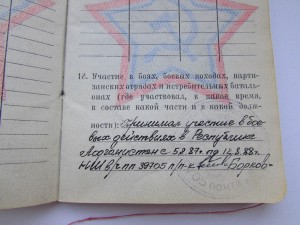 12. Участие в боях, боевых походах, парти-
занских отрядах и истребительных баталь-
онах (где участвовал, в какое время,
в составе какой части и в какой долж-
ности): Принимал участие в бое-
вых действиях в Республике
Афганистан с 5.8.87г. по 12.8.88г.
НШ в/ч пп 39705 п/п-к Борков